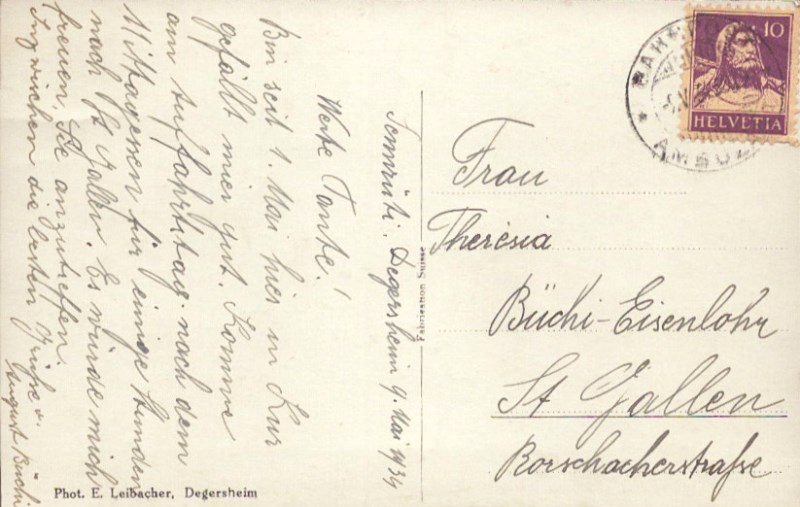 Sennrüti, Degersheim 9. Mai 1934
Werte Tante!
Bin seit 1. Mai hier in Kur
gefällt mir gut. Komme
am Auffahrtstag nach dem
Mittagessen für einige Stunden
nach St. Gallen. Es würde mich
freuen, Sie anzutreffen.
Inzwischen die besten Grüße v.
August Büchi
Phot. E. Leibacher, Degersheim
Fabrikation Suisse
Frau
Therésia
Büchi-Eisenlohr
St Gallen
Rorschacherstraße
10
HELVETIA